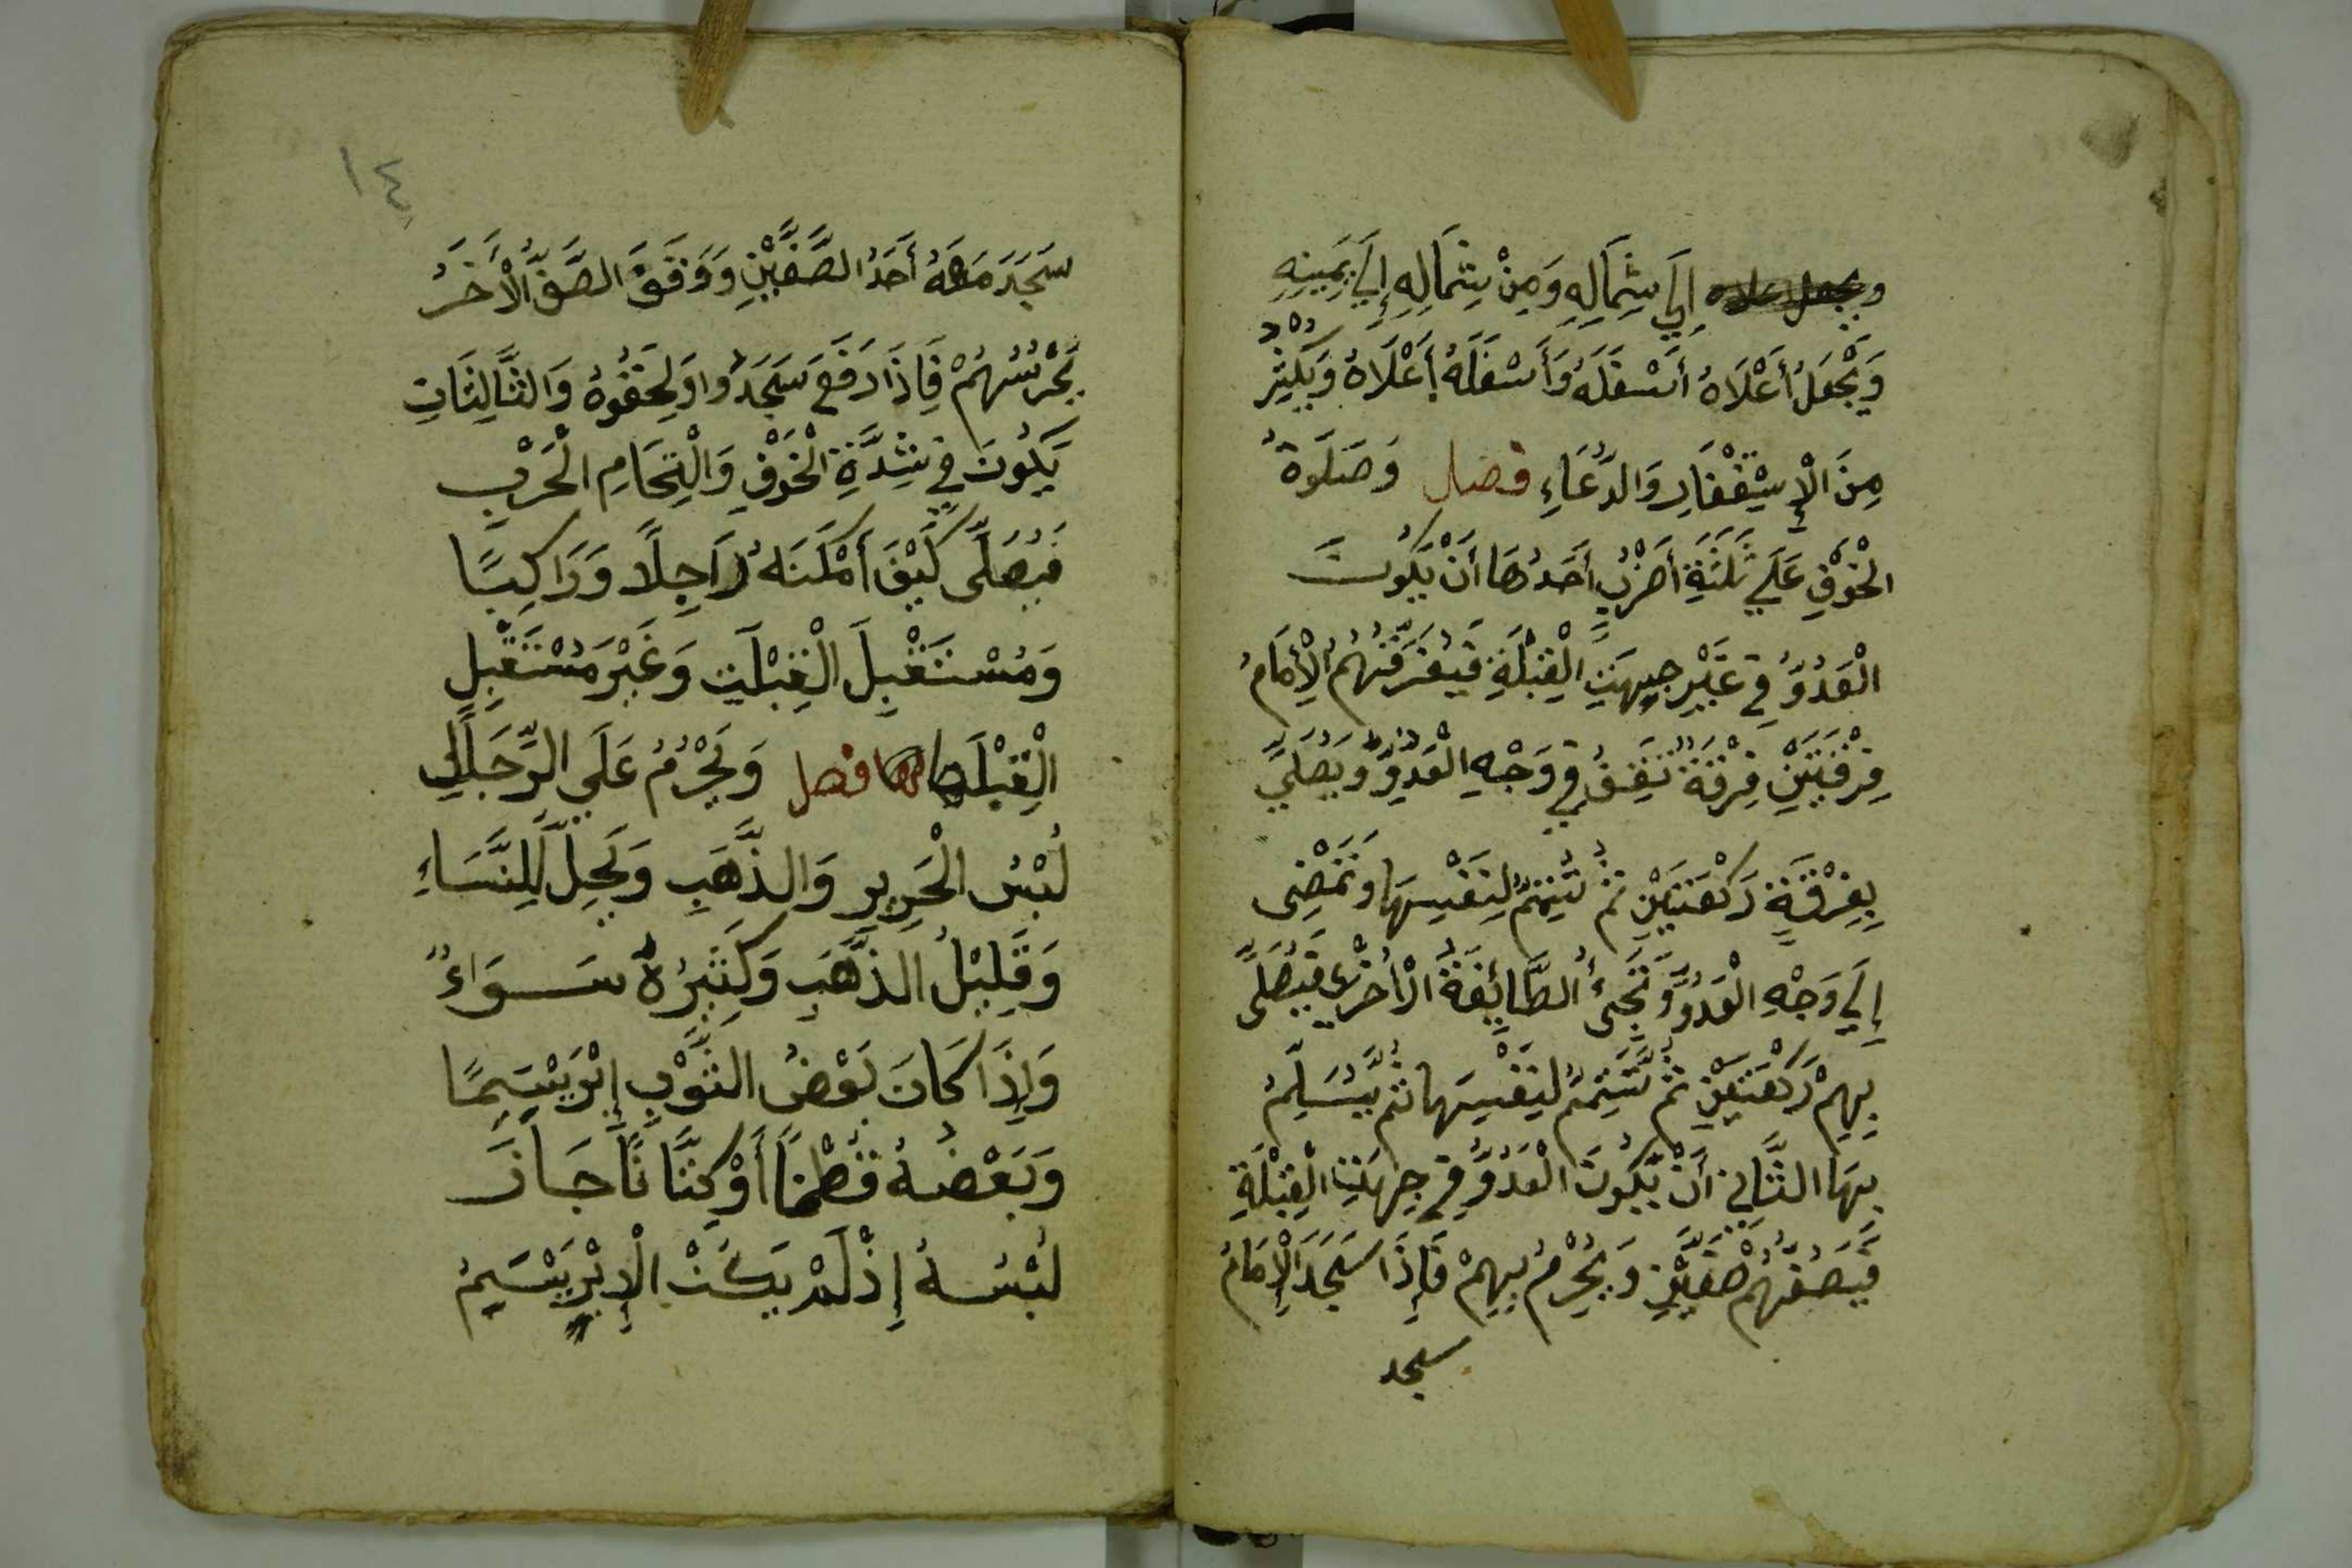 إِلَي شِمَالِهِ وَمِنْ شِمَالِهِ إِلَي يَمِينِهِ
وَيَجْعَلُ أَعْلَاهُ أَسْفَلَهُ وَأَسْفَلَهُ أَعْلَاهُ وَيُكْثِرُ
مِنَ الْإِسْتِغْفَارِ وَالدُّعَاءِ فصل وَصَلَوةُ
الْخَوْفِ عَلَي ثَلَثَةِ أَضْرُبٍ أَحَدُهَا أَنْ يَكُونَ
الْعَدُوُّ فِي غَيْرِ جِهَتِ الْقِبْلَةِ فَيُفَرِّقُهُمُ الْإِمَامُ
فِرْقَتَيْنِ فِرْقَةً تَقِفُ فِي وَجْهِ الْعَدُوِّ وَيُصَلِّي
بِفِرْقَةٍ رَكْعَتَيْنِ ثُمَّ تُتِمُّ لِنَفْسِهَا وَتَمْضِى
إِلَي وَجْهِ الْعَدُوِّ وَتَجِىءُ الطَّائِفَةُ الْأُخْرَى فَيُصَلِّى
بِهِمْ رَكْعَتَيْنِ ثُمَّ تُتِمُّ لِنَفْسِهَا ثُمَّ يُسَلِّمُ
بِهَا الثَّانِي أَنْ يَكُونَ الْعَدُوُّ فِي جِهَتِ الْقِبْلَةِ
فَيَصُفُّهُمْ صَفَّيْنِ وَيُحْرِمُ بِهِمْ فَإِذَا سَجَدَ الْإِمَامُ
سجد
١٤
سَجَدَ مَعَهُ أَحَدُ الصَّفَّيْنِ وَوَقَفَ الصَّفُّ الْأَخَرُ
يَحْرُسُهُمْ فَإِذَا رَفَعَ سَجَدُوا وَلَحِقُوهُ وَالثَّالِثَاتِ
يَكُونَ فِي شِدَّةِ الْخَوْفِ وَالْتِحَامِ الْحَرْبِ
فَيُصَلِّى كَيْفَ أَمْكَنَهُ رَاجِلًا وَرَاكِبًا
وَمُسْتَقْبِلَ الْقِبْلَتِ وَغَيْرَ مُسْتَقْبِلِ
الْقِبْلَ لها فصل وَيَحْرُمُ عَلَي الرِّجَالِ
لُبْسُ الْحَرِيرِ وَالذَّهَبِ وَيَحِلُّ لِلنِّسَاءِ
وَقَلِيلُ الذَّهَبِ وَكَثِيرُهُ سَوَاءٌ
وَإِذَا كَانَ بَعْضُ الثَّوْبِ إِبْرَيْسَمًا
وَبَعْضُهُ قُطْنًا أَوْ كِتَّانًا جَازَ
لُبْسُهُ إِذْ لَمْ يَكُنْ الْإِبْرَيْسَمُ